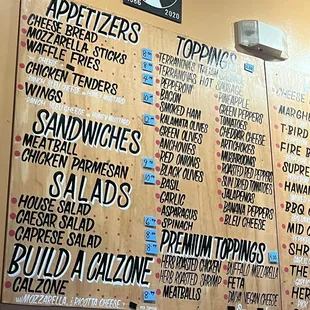 2020
APPETIZERS
CHEESE BREAD
MOZZARELLA STICKS
WAFFLE FRIES
CHICKEN TENDERS
WINGS
SANDWICHES
MEATBALL
CHICKEN PARMESAN
SALADS
HOUSE SALAD
CAESAR SALAD
CAPRESE SALAD
BUILD A CALZONE
CALZONE
W/MOZZARELLA, RICOTTA CHEESE
TOPPINGS
PEPPERONI
BACON
SMOKED HAM
KALAMATA OLIVES
GREEN OLIVES
ANCHOVIES
RED ONIONS
BLACK OLIVES
BASIL
GARLIC
ASPARAGUS
SPINACH
SAUSAGE
PINEAPPLE
GREEN PEPPERS
TOMATOES
CHEDDAR CHEESE
ARTICHOKES
MUSHROOMS
ROASTED RED PEPPERS
SUN DRIED TOMATOES
JALAPENOS
BANANA PEPPERS
BLEU CHEESE
PREMIUM TOPPINGS
HERB ROASTED CHICKEN
HERB ROASTED SHRIMP
MEATBALLS
BUFFALO MOZZARELLA
FETA
DAIYA VEGAN CHEESE
CHEESE
MARGHE
T-BIRD
FIRE B
SUPRE
HAWA
BBQ
MID
SH
THE